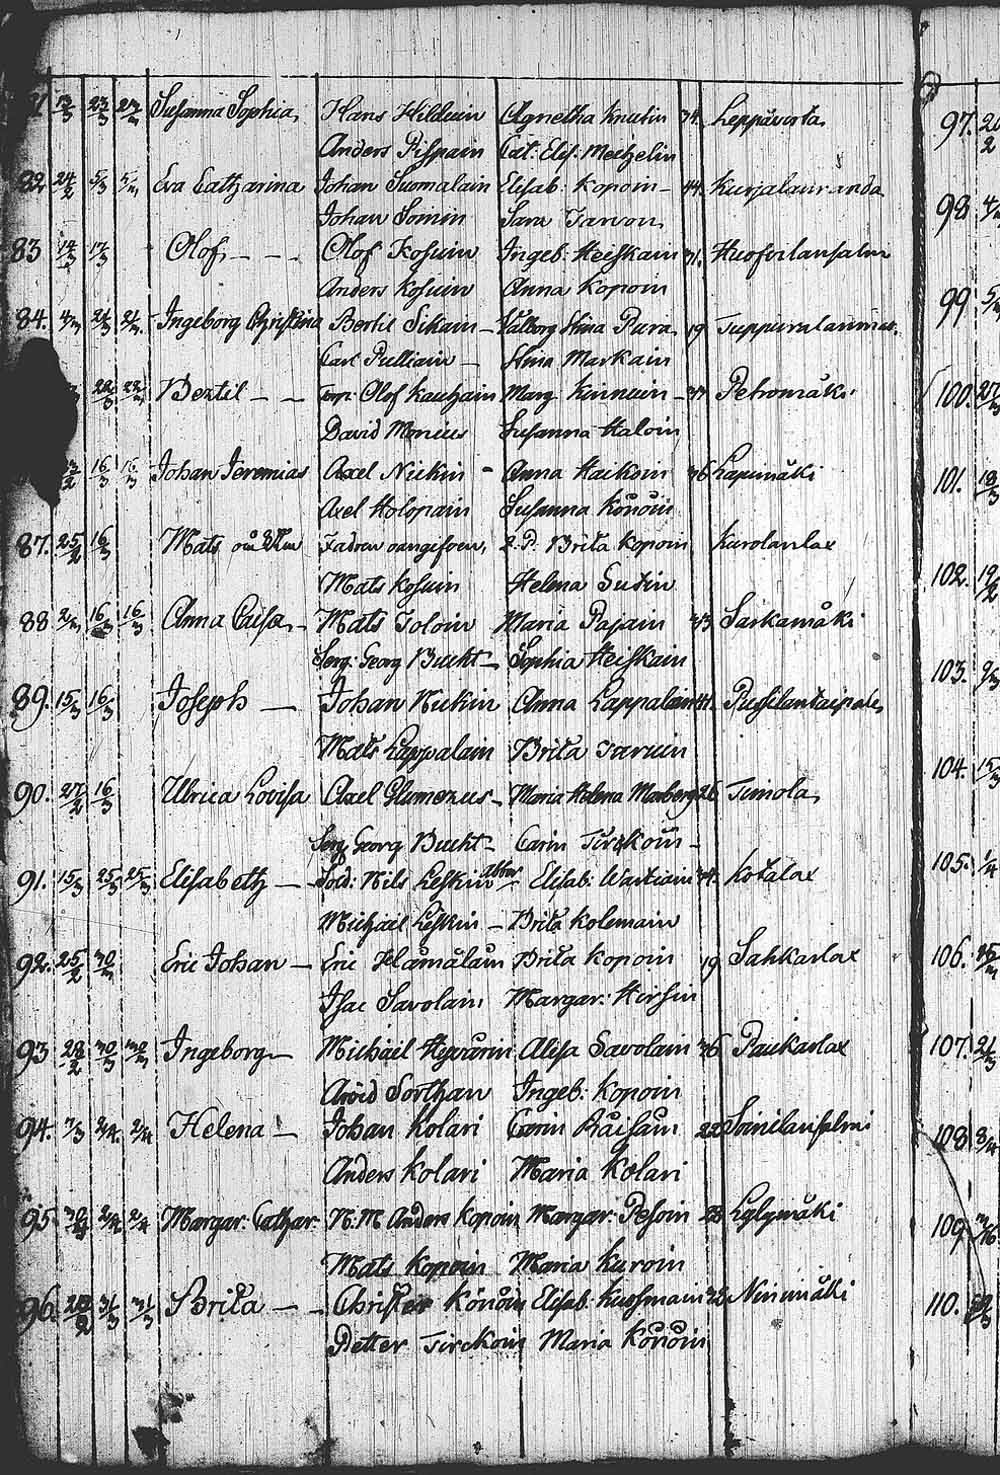 81 13/3 23/3 23/3 Susanna Sophia Hans Hilduin Agnetha Knutin 34. Leppävirta
Anders Pispain Cat: Elis. Meitzelin
82 24/2 5/3 5/m Eva Catharina Johan Suomalain Elisab: Kopoin 44. Kurjalanranda
Johan Somin Sara Tarvon
83 14/3 17/3 Olof Olof Kosuin Ingeb: Heiskain 31.
Anders Kosuin Anna Kopoin
84. 4/m 21/3 21/m Ingeborg Christina Bertil Sikain Valborg Stina Pura 19
Carl Pulliain Stina Markain
22/3 22/m Bertil Olof Kauhain Marg Kinnuin 37 Petromäki
David Monius Susanna Haloin
16/3 16/3 Johan Jeremias Axel Niskin Anna Haikoin 36 Lapinmäki
Axel Holopain Susanna Könöin
87. 25/2 16/3 Mats Fadren oangifven, Brita Kopoin Kurolanlax
Mats Kosuin Helena Sutin
88 2/m 16/3 16/3 Anna Caisa Mats Toloin Maria Pajain 33 Sarkamäki
Serg: Georg Bucht Sophia Heiskain
89. 15/3 16/3 Joseph Johan Niskin Anna Lappalain
Mats Lappalain Brita Tarvuin
90. 27/2 16/3 Ulrica Lovisa Axel Glumerus Maria Helena Masberg 26 Timola
Serg Georg Bucht Carin Tirckoin
91. 15/3 25/3 25/3 Elisabeth Sold: Nils Leskin Elisab: Wartiain 34. Kotalax
Michael Leskin Brita Kolemain
92. 25/2 30/m Eric Johan Eric Hämäläin Brita Kopoin 19 Sahkarlax
Isac Savolain Margar: Hirsin
93 28/2 30/3 30/m Ingeborg Michael Hyvärin Alisa Savolain 36 Paukarlax
Arvid Sorthan Ingeb: Kopoin
94. 7/3 2/4. 2/4 Helena Johan Kolari Carin Räisäin 28 Soinilansalmi
Anders Kolari Maria Kolari
95. 30/m 2/4 2/4 Margar: Cathar N:M Anders Kopoin Margar: Pesoin 23 Lylymäki
Mats Kopoin Maria Kuroin
96. 28/2 31/3 31/3 Brita Christer Könöin Elisab: Kuosmain 32 Ninimäki
Petter Tirckoin Maria Könöin
97.
98
99
100.
101. 18/3
102. 19/2
103. 9/3
104. 15/3
105. 1/4
106.
107. 21/3
108 3/4
109
110.